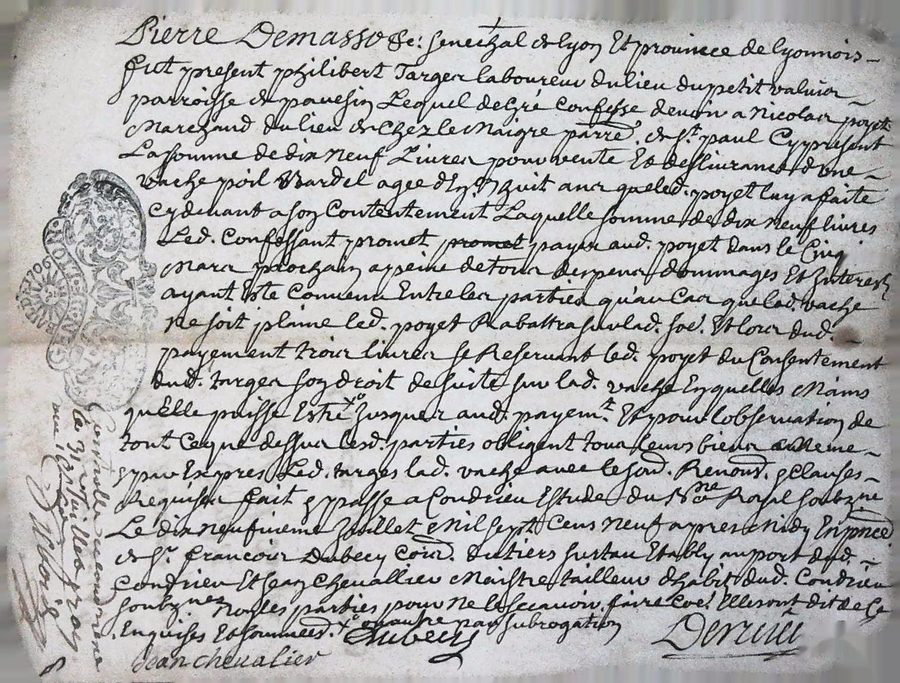 Pierre Demasso &c: senechal de lyon Et province de lyonnois
fut present philibert Targes laboureur du lieu du petit
parroisse de pavesin Lequel de Gré Confesse devoir a Nicolas poyet
Marchand du lieu de chez le Maigre parre. de St. paul Cy present
La somme de dix neuf Livres pour vente Et deslivrance dune
vache poil Bardel agee d'Ey. huit ans que led. poyet luy a faite
cy devant a soy Contentement Laquelle somme de dix neuf livres
Led. Confessant promet promet payer aud. poyet dans le Cinq
Mars prochain a peine de tous despens dommages Et Interests
ayant Esté Convenu Entre les parties qu'au Cas que lad. vache
Ne soit plaine led. poyet Rabattra sur lad. so.e Et lors dud.
payement trois livres se Reservant led. poyet du Consentement
dud. targes soy droit de suite sur lad. vache Ey quelles Mains
qu'Elle puisse Estre Jusques aud. payemt. Et pour lobservation de
tout Ce que dessus lesd. parties obligent tous leurs biens
Et par Expres Led. targes lad. vache avec le sud. Renond. & Clauses
Requises fait & passe a Condrieu Estude du No.re Royal soubzne.
Le dix neufvieme Juillet Mil sept Cens Neuf apres Midy En pnce.
de Sr. francois Dubecy Cour. du tiers sur tau Etably au port dud.
Condrieu Et Jean Chevallier Maistre tailleur d'habit dud. Condrieu
soubznes. Non les parties pour Ne le scavoir faire Co.e Elles ont dit de Ce
Enquises Et sommees. par subrogation
Dubecy
Jean chevalier
Controllé a condrieu
le 23e Juillet 1709